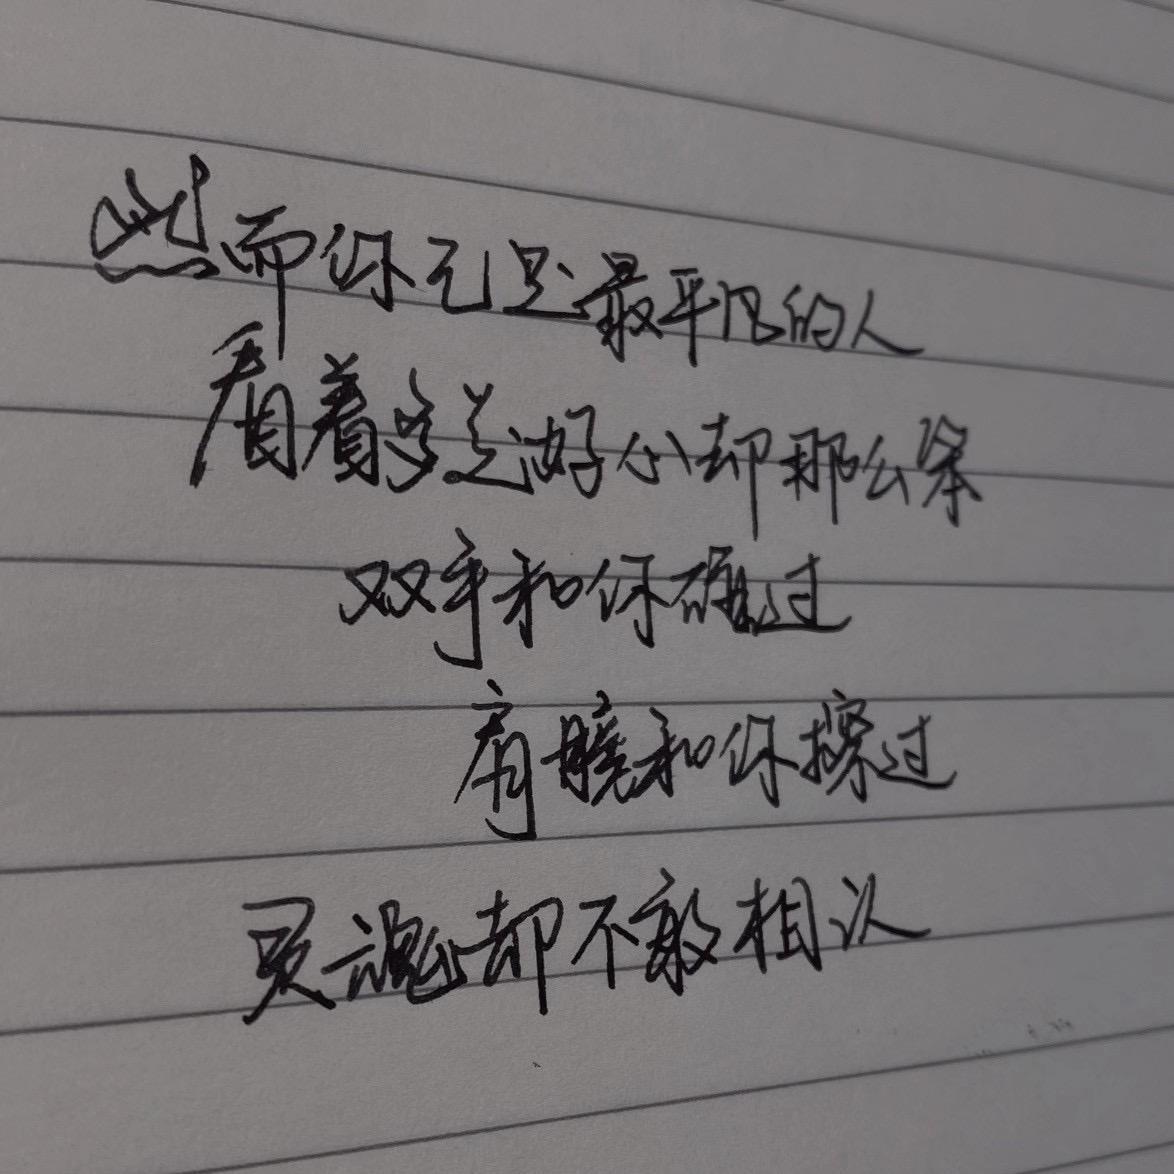 然而你已是最平凡的人
看着美好心却那么
双手和你碰过
肩膀和你擦过
灵魂却不敢相认